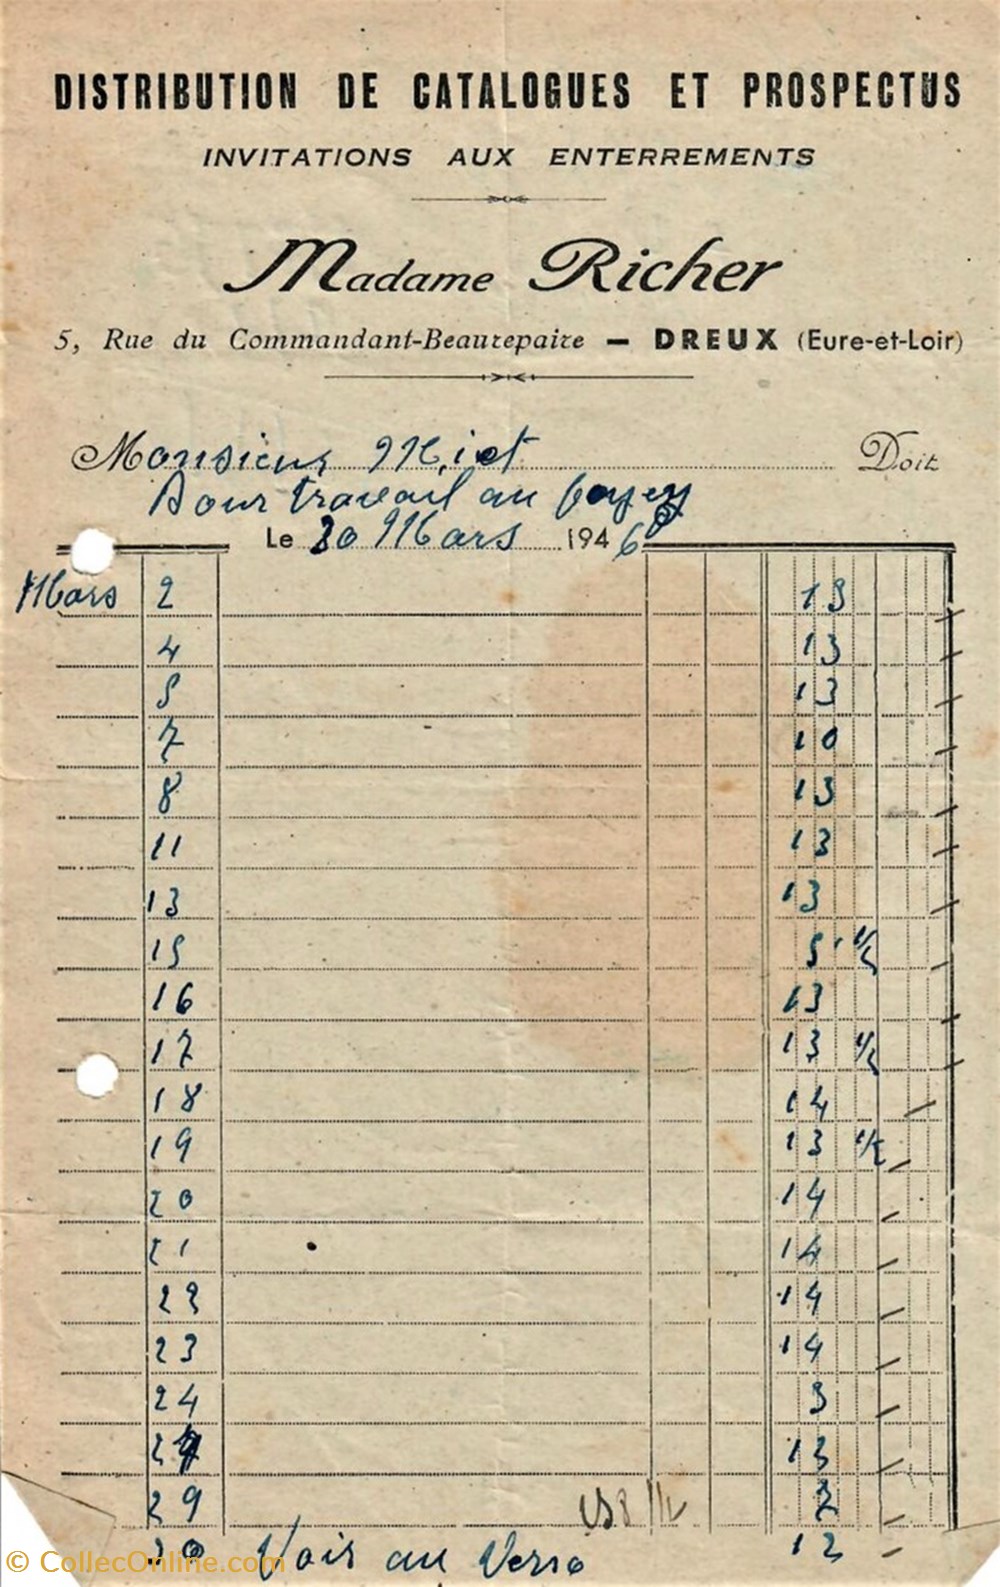 DISTRIBUTION DE CATALOGUES ET PROSPECTUS
INVITATIONS AUX ENTERREMENTS
Madame Richer
5, Rue du Commandant-Beaurepaire — DREUX (Eure-et-Loir)
Monsieur Doit
Pour travail au
Le 30 Mars 1946
Mars 2 13
4 13
5 13
7 10
8 13
11 13
13 13
15 5 1/2
16 13
17 13 1/2
18 14
19 13 1/2
20 14
21 14
22 14
23 14
24 3
13
29 7
30 Voir au Verso 12
© CollecOnline.com